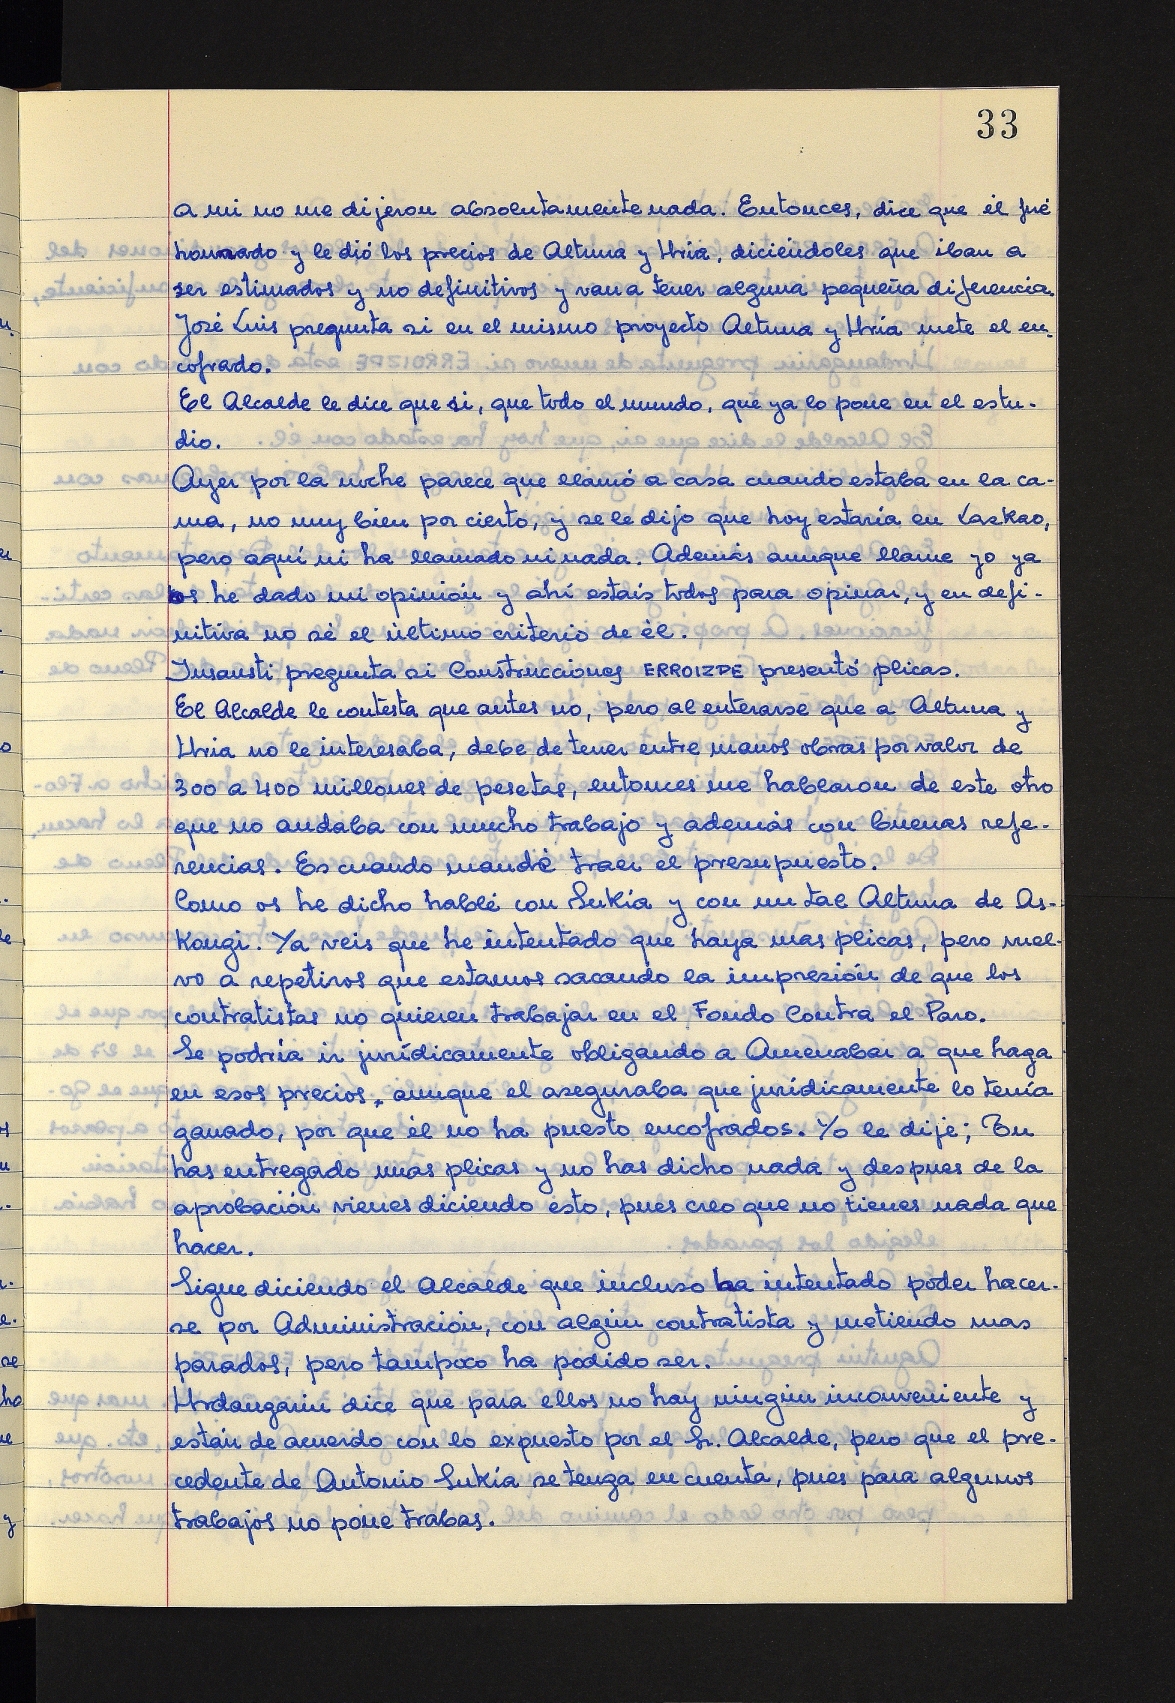 33
a mi no me dijeron absolutamente nada. Entonces, dice que él fué
honrado y le dió los precios de Altuna y Uria, diciéndoles que iban a
ser estimados y no definitivos y van a tener alguna pequeña diferencia.
José Luis pregunta si en el mismo proyecto Altuna y Uria mete el en-
cofrado.
El Alcalde le dice que si, que todo el mundo, que ya lo pone en el estu-
dio.
Ayer por la noche parece que llamó a casa cuando estaba en la ca-
ma, no muy bien por cierto, y se le dijo que hoy estaría en Lazkao,
pero aquí ni ha llamado ni nada. Además aunque llame yo ya
os he dado mi opinión y ahí estais todos para opinar, y en defi-
nitiva no sé el último criterio de él.
Insausti pregunta si Construcciones ERROIZPE presentó plicas.
El Alcalde le contesta que antes no, pero al enterarse que a Altuna y
Uria no le interesaba, debe de tener entre manos obras por valor de
300 a 400 millones de pesetas, entonces me hablaron de este otro
que no andaba con mucho trabajo y además con buenas refe-
rencias. Es cuando mandé traer el presupuesto.
Como os he dicho hablé con Sukia y con un tal Altuna de As-
Kongi. Ya veis que he intentado que haya mas plicas, pero vuel-
vo a repetiros que estamos sacando la impresión de que los
contratistas no quieren trabajar en el Fondo Contra el Paro.
Se podría ir jurídicamente obligando a Amenabar a que haga
en esos precios, aunque el aseguraba que jurídicamente lo tenía
ganado, por que él no ha puesto encofrados. Yo le dije; Tu
has entregado unas plicas y no has dicho nada y despues de la
aprobación vienes diciendo esto, pues creo que no tienes nada que
hacer.
Sigue diciendo el Alcalde que incluso ha intentado poder hacer-
se por Administración, con algún contratista y metiendo mas
parados, pero tampoco ha podido ser.
Urdangarin dice que para ellos no hay ningún inconveniente y
están de acuerdo con lo expuesto por el Sr. Alcalde, pero que el pre-
cedente de Antonio Sukia se tenga en cuenta, pues para algunos
trabajos no pone trabas.